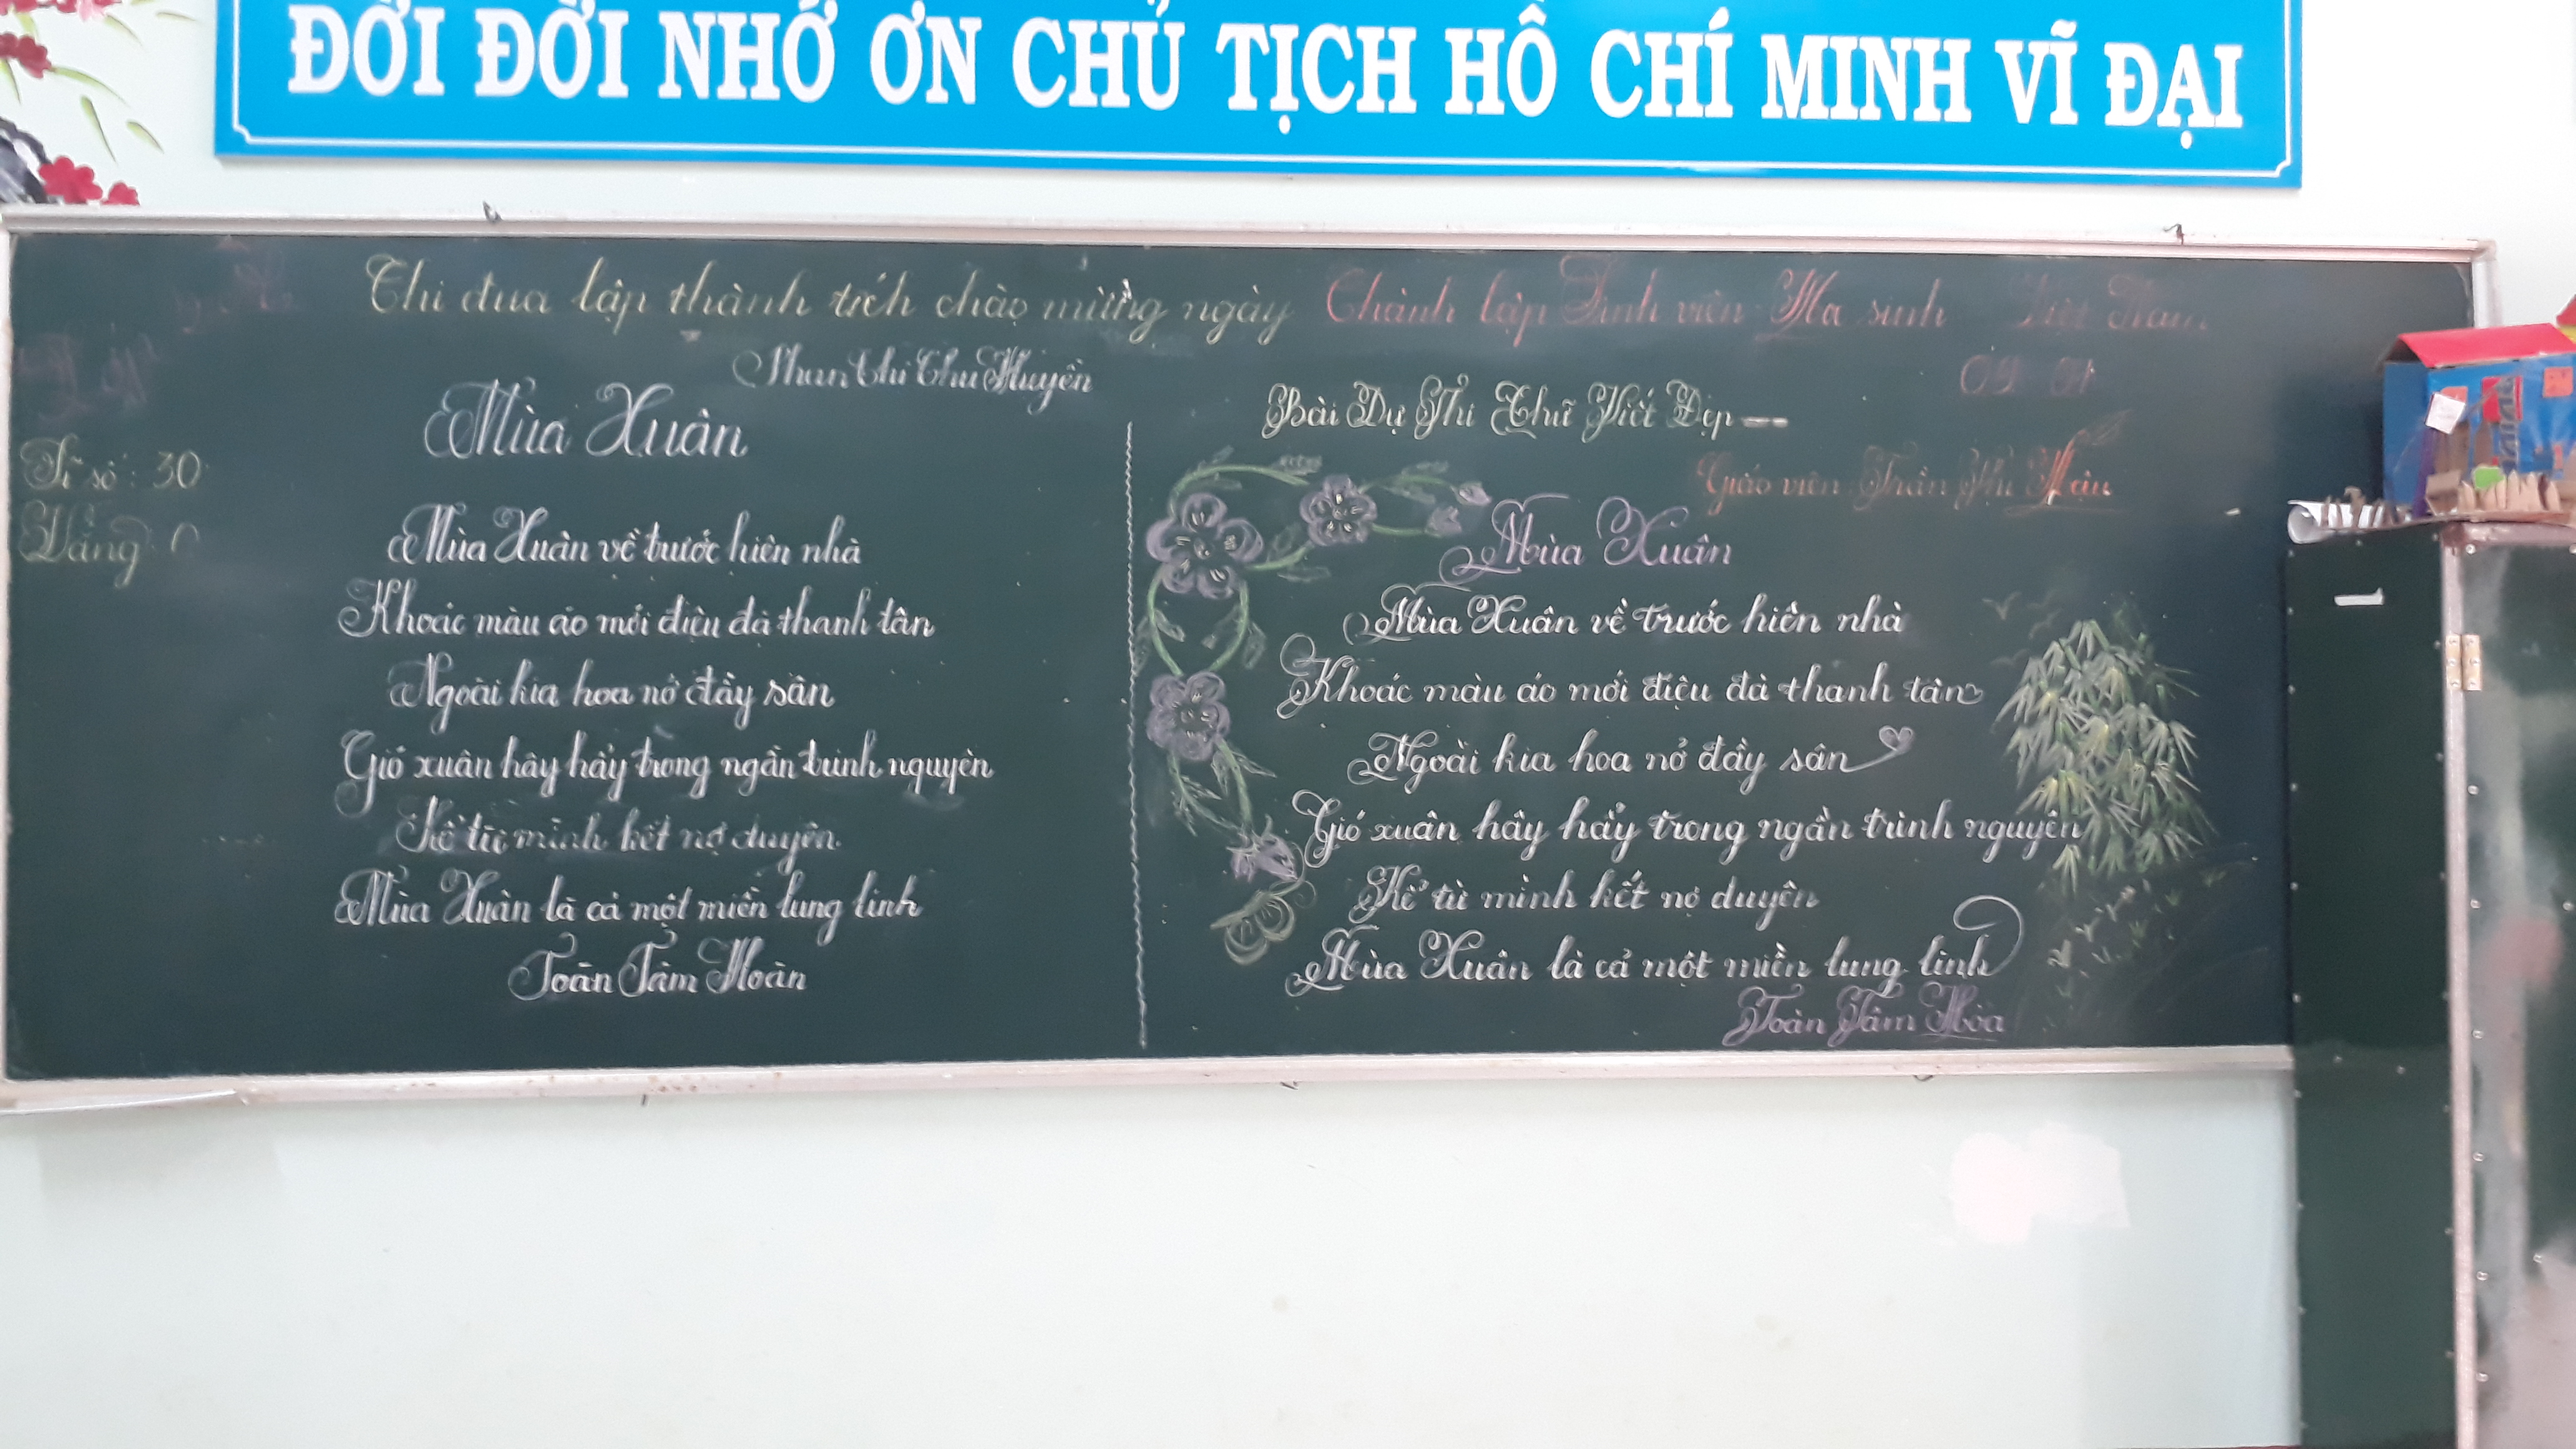 ĐỜI ĐỜI NHỚ ƠN CHỦ TỊCH HỒ CHÍ MINH VĨ ĐẠI
Thi đua lập thành tích chào mừng ngày Thành lập Sinh viên Ha sinh Việt Nam
09 01
Sĩ số: 30
Vắng: 0
Phan Thi Thu Huyền
Mùa Xuân
Mùa Xuân về trước hiên nhà
Khoác màu áo mới điệu đà thanh tân
Ngoài kia hoa nở đầy sân
Gió xuân hây hẩy trong ngần trinh nguyên
Kể từ mình kết nợ duyên
Mùa Xuân là cả một miền lung linh
Toàn Tâm Hoàn
Bài Dự Thi Chữ Viết Đẹp
Giáo viên: Trần Thị
Mùa Xuân
Mùa Xuân về trước hiên nhà
Khoác màu áo mới điệu đà thanh tân
Ngoài kia hoa nở đầy sân
Gió xuân hây hẩy trong ngần trinh nguyên
Kể từ mình kết nợ duyên
Mùa Xuân là cả một miền lung linh
Toàn Tâm Hòa